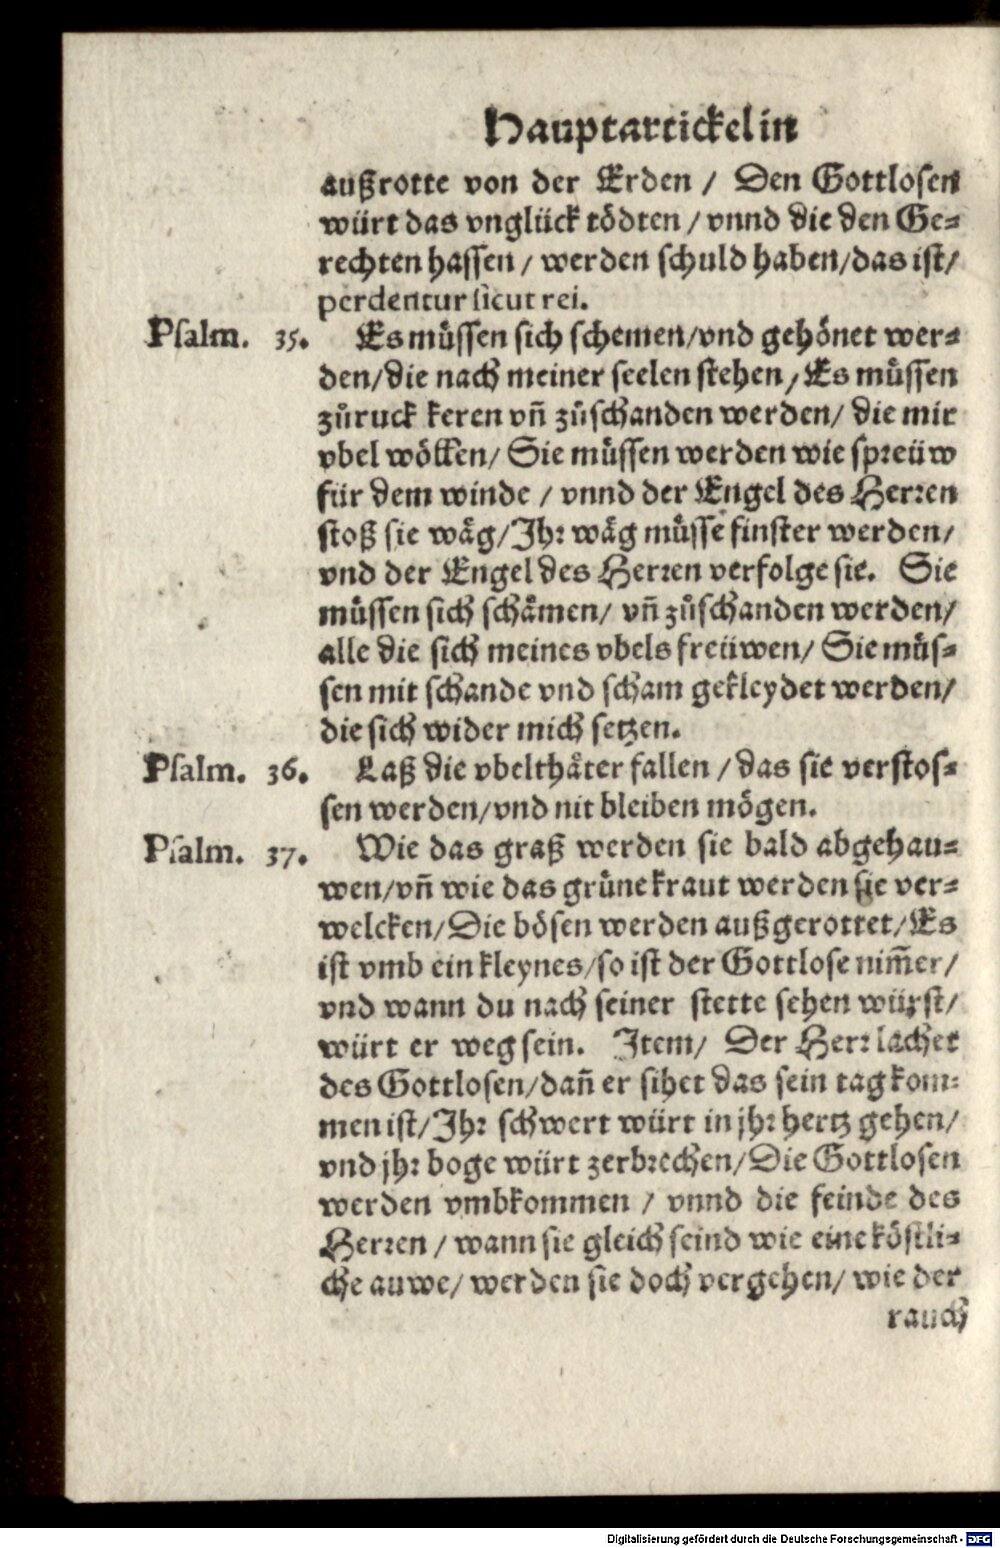 Hauptartickel in
außrotte von der Erden / Den Gottlosen
würt das vnglück tödten / vnnd die den Ge⸗
rechten hassen / werden schuld haben/das ist/
perdentur sicut rei.
Psalm. 35. Es müssen sich schemen/vnd gehönet wer⸗
den/die nach meiner seelen stehen / Es müssen
zůruck keren vñ zůschanden werden/ die mir
vbel wöllen/ Sie müssen werden wie spreüw
für dem winde / vnnd der Engel des Herren
stoß sie wäg/Ihr wäg müsse finster werden/
vnd der Engel des Herren verfolge sie. Sie
müssen sich schämen/ vñ zůschanden werden/
alle die sich meines vbels freüwen/ Sie müs⸗
sen mit schande vnd scham gekleydet werden/
die sich wider mich setzen.
Psalm. 36. Laß die vbelthäter fallen / das sie verstos⸗
sen werden/vnd nit bleiben mögen.
Psalm. 37. Wie das graß werden sie bald abgehau⸗
wen/vñ wie das grüne kraut werden sie ver⸗
welcken/Die bösen werden außgerottet/Es
ist vmb ein kleynes/so ist der Gottlose nim̃er/
vnd wann du nach seiner stette sehen würst/
würt er weg sein. Item/ Der Herr lachet
des Gottlosen/dañ er sihet das sein tag kom⸗
men ist/Ihr schwert würt in jhr hertz gehen/
vnd jhr boge würt zerbrechen/Die Gottlosen
werden vmbkommen / vnnd die feinde des
Herren / wann sie gleich seind wie eine köstli⸗
che auwe/ werden sie doch vergehen/ wie der
rauch
Digitalisierung gefördert durch die Deutsche Forschungsgemeinschaft - DFG